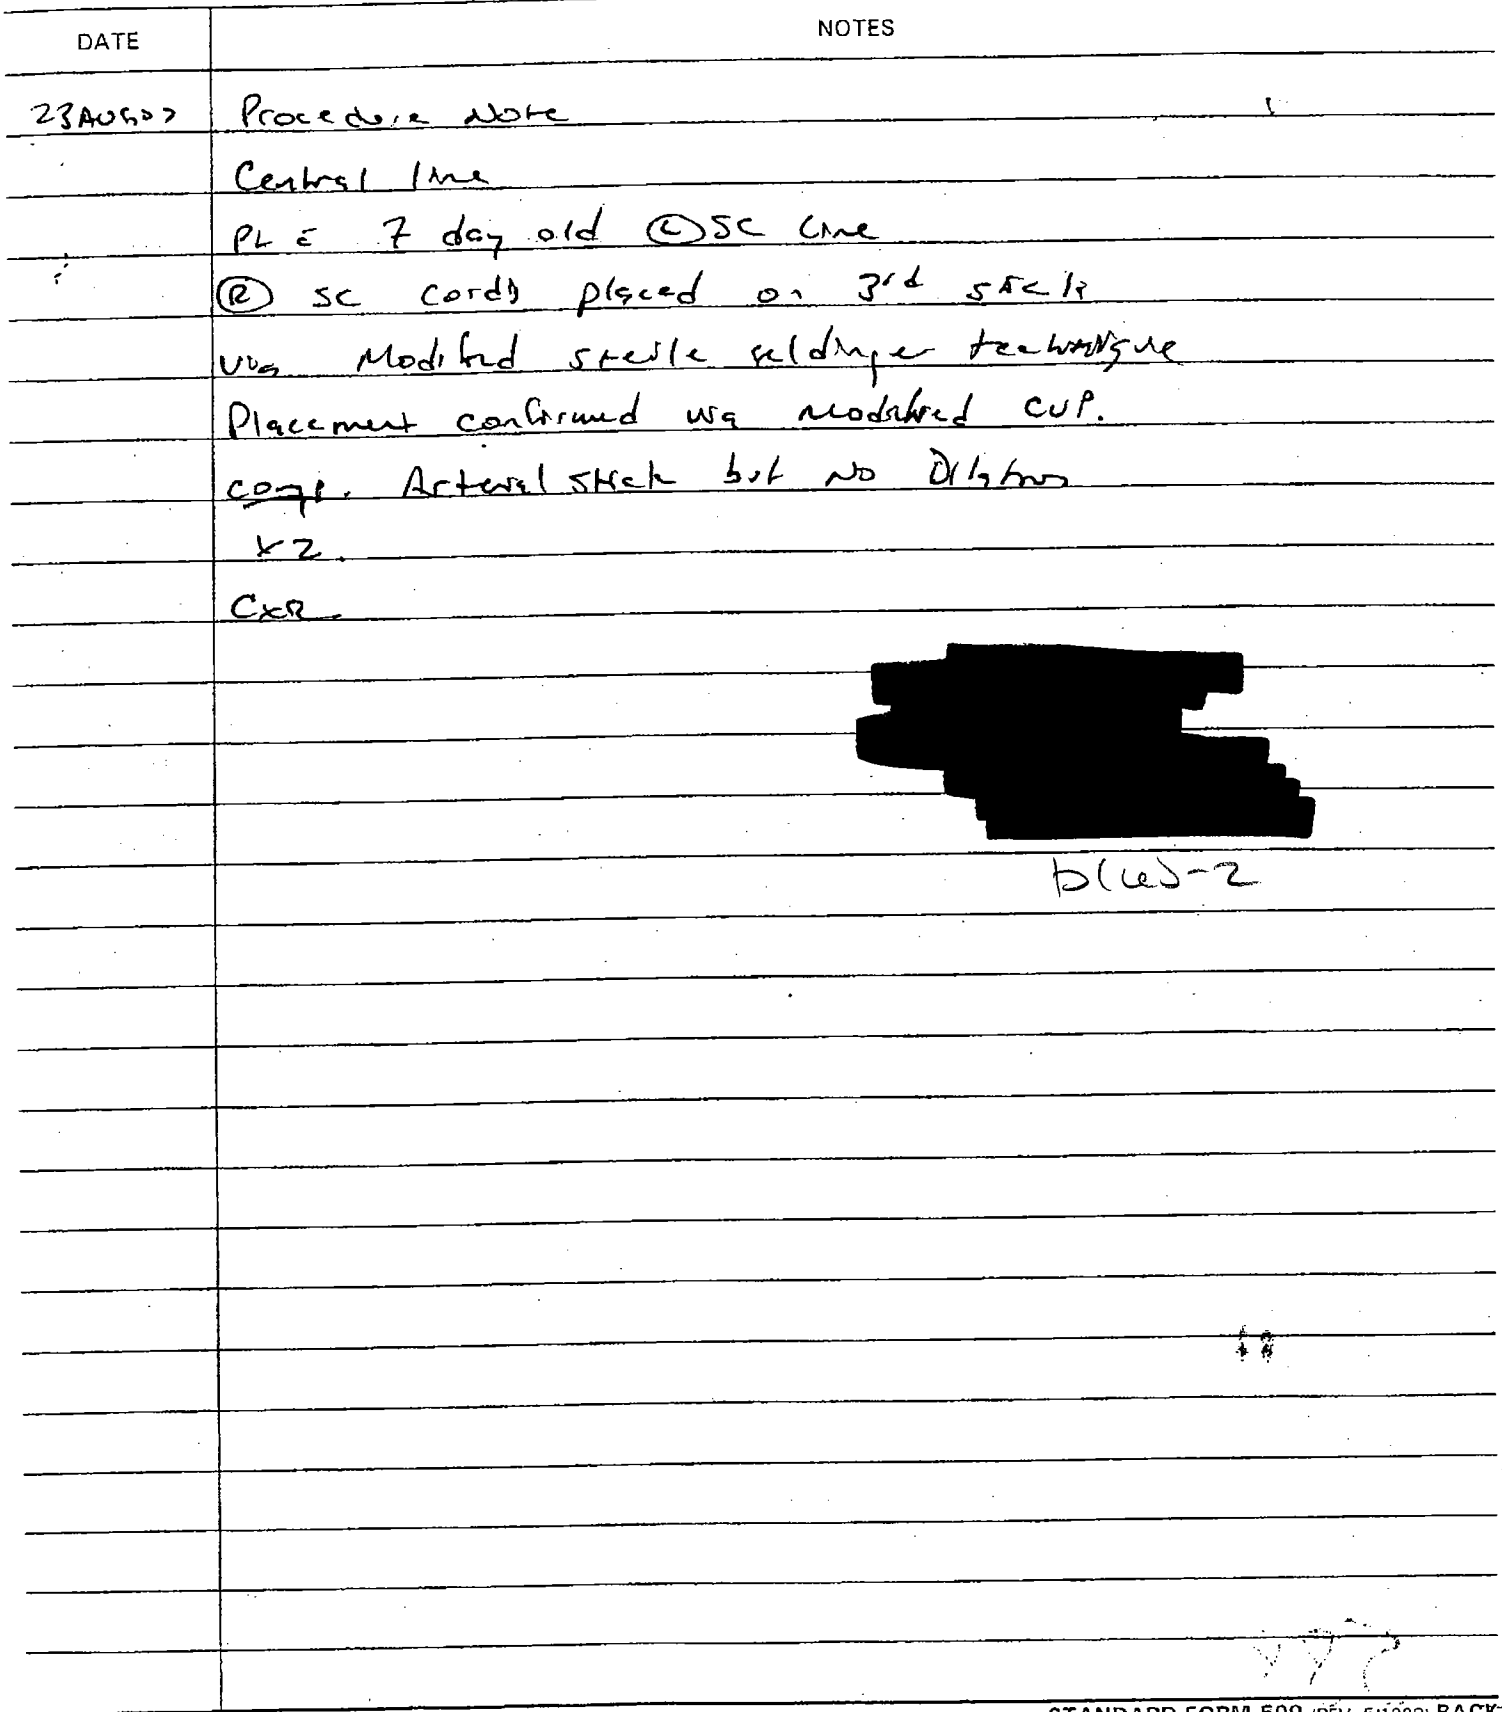 DATE NOTES
23AUG07 Procedure Note
Central line
Pt c̄ 7 day old Ⓛ SC line
Ⓡ SC Cordis placed on 3rd stick
via Modified sterile seldinger technique
Placement confirmed via modified CVP.
comp. Arterial stick but No Dilation
x2.
CXR
b(6)-2
STANDARD FORM 509 (REV. 5/1999) BACK